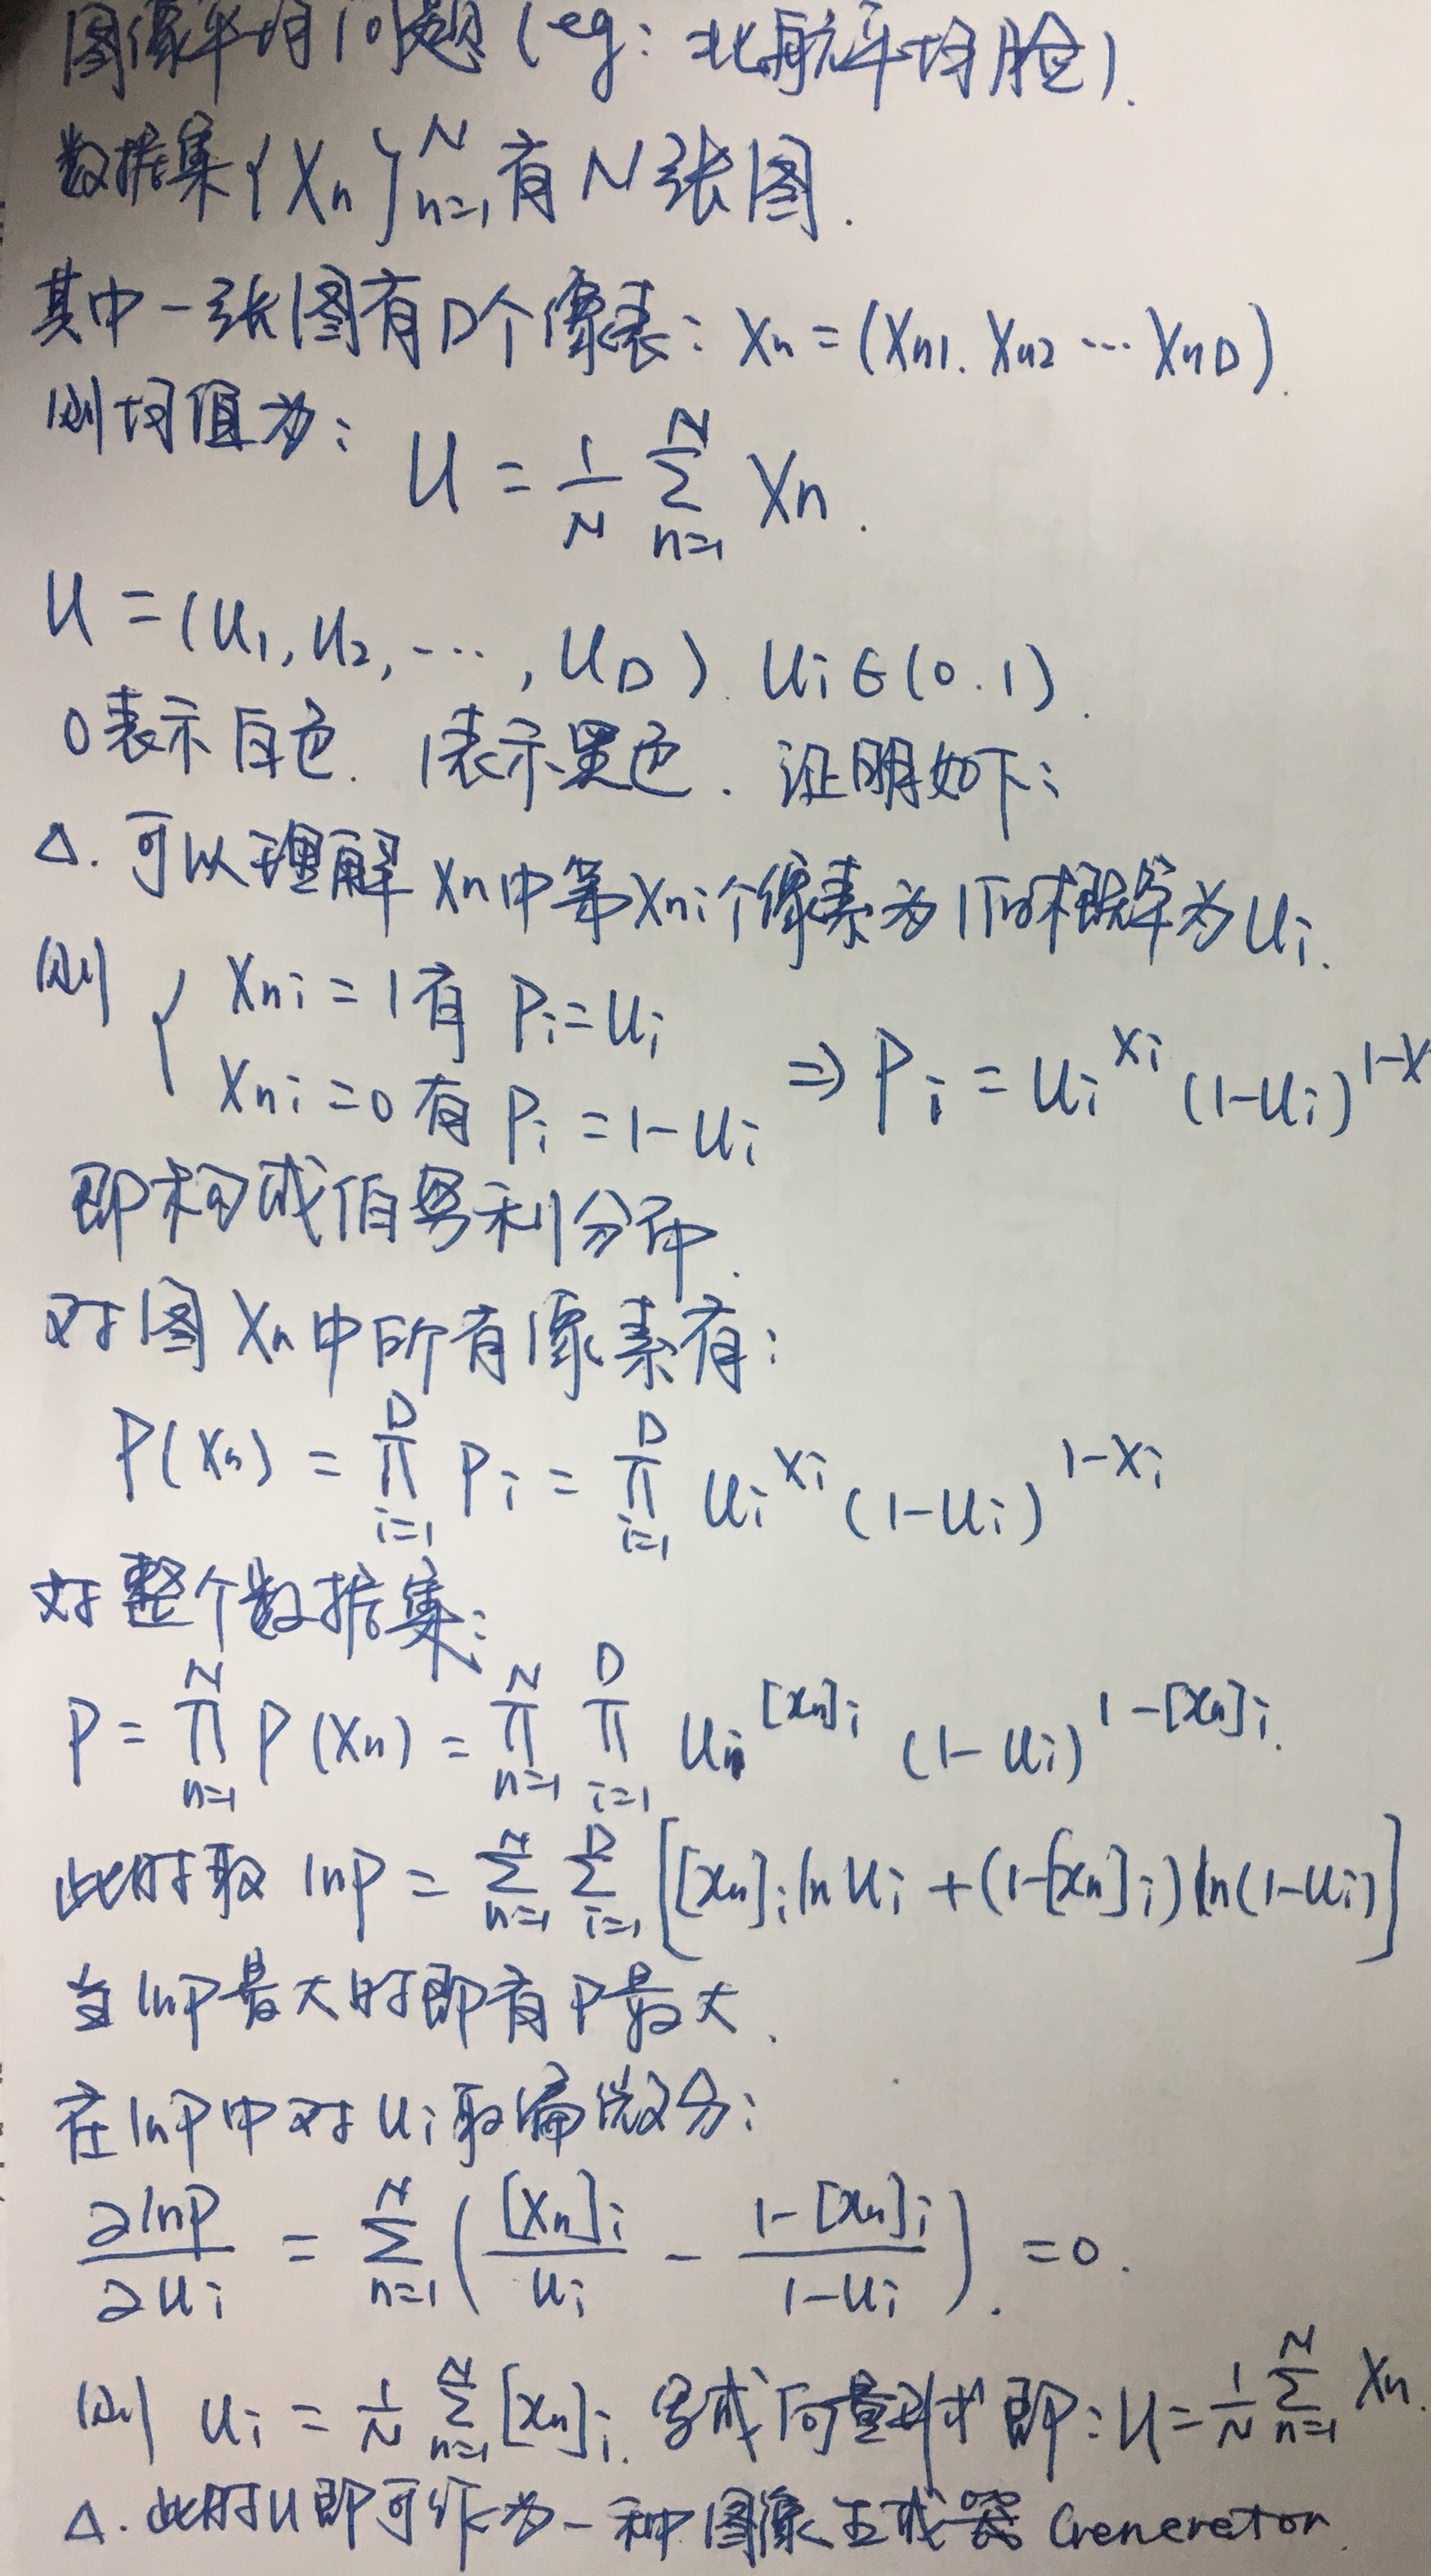 图像平均问题(eg: 北航平均脸).
数据集{Xn}ᴺₙ₌₁有N张图.
其中一张图有D个像素: Xn = (Xn1. Xn2 … XnD).
则均值为: U = 1/N Σᴺₙ₌₁ Xn.
U = (U1, U2, …, UD). Ui∈(0.1).
0表示白色. 1表示黑色. 证明如下:
Δ. 可以理解Xn中第Xni个像素为1的概率为Ui.
则 { Xni = 1有 Pi = Ui
Xni = 0有 Pi = 1-Ui ⇒ Pi = Ui^Xi (1-Ui)^1-X
即构成伯努利分布.
对图Xn中所有像素有:
P(Xn) = Πᴰᵢ₌₁ Pi = Πᴰᵢ₌₁ Ui^Xi (1-Ui)^1-Xi
对整个数据集:
P = Πᴺₙ₌₁ P(Xn) = Πᴺₙ₌₁ Πᴰᵢ₌₁ Ui^[xn]i (1-Ui)^1-[xn]i.
此时取 lnP = Σᴺₙ₌₁ Σᴰᵢ₌₁ [[xn]i ln Ui + (1-[xn]i) ln(1-Ui)]
当lnP最大时即有P最大.
在lnP中对Ui取偏微分:
∂lnP/∂Ui = Σᴺₙ₌₁ ([Xn]i/Ui - (1-[xn]i)/(1-Ui)). = 0.
则 Ui = 1/N Σᴺₙ₌₁ [xn]i. 写成向量形式即: U = 1/N Σᴺₙ₌₁ Xn.
Δ. 此时U即可作为一种图像生成器 Ceneretor.